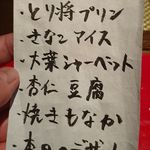 ・とり将プリン
・きなこアイス
・大葉シャーベット
・杏仁豆腐
・焼きもなか
・本日のデザ